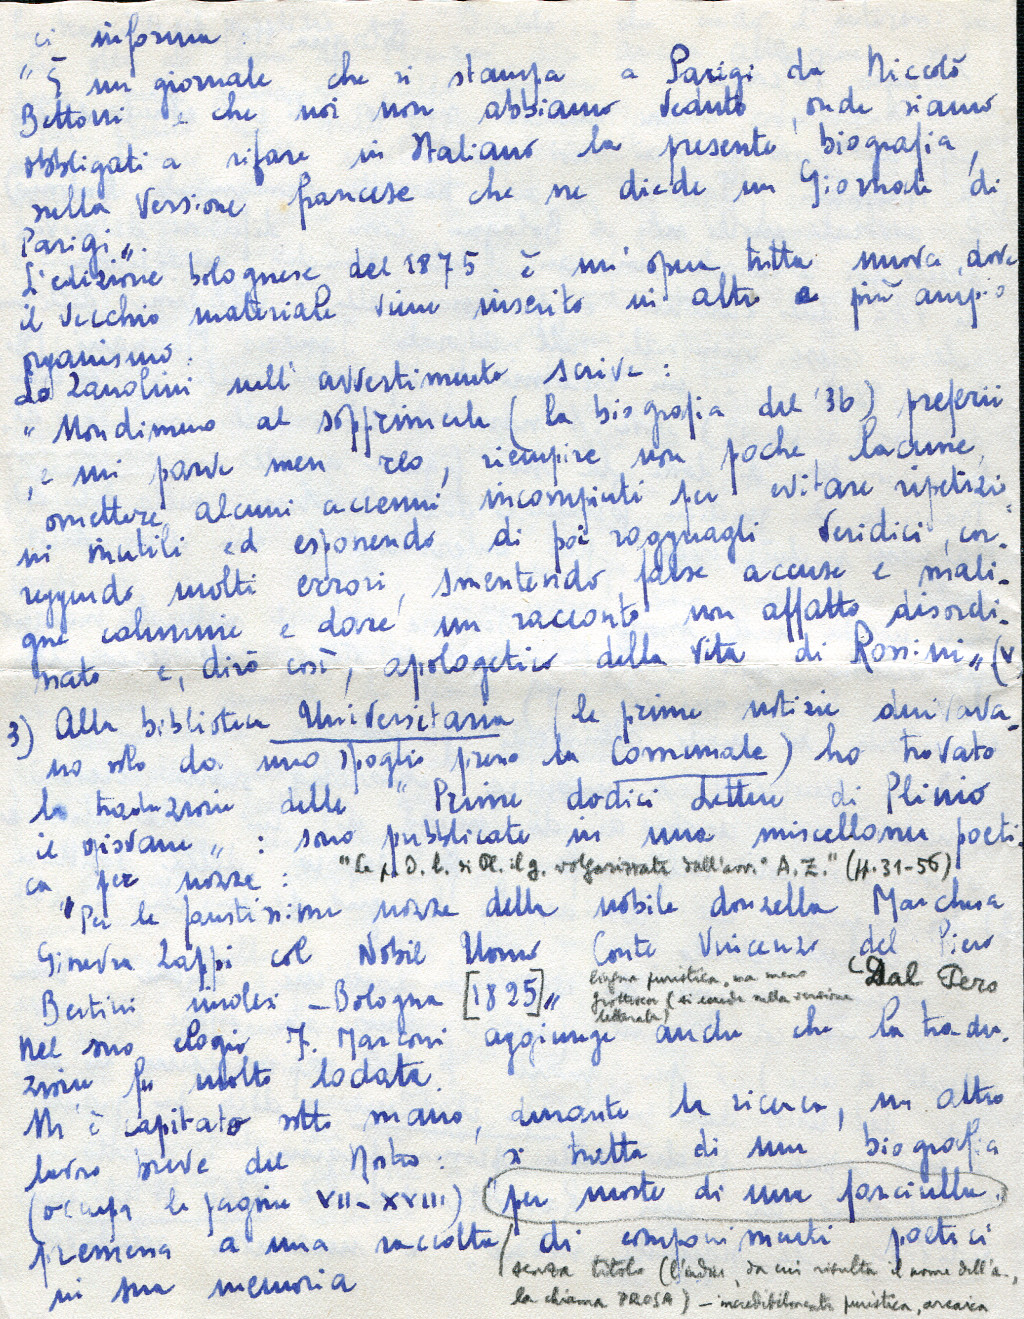 ci informa
"È un giornale che si stampa a Parigi da Niccolò
Bettoni e che noi non abbiamo veduto, onde siamo
obbligati a rifare in Italiano la presente biografia,
sulla versione francese che ne diede un Giornale di
Parigi".
L'edizione bolognese del 1875 è un'opera tutta nuova, dove
il vecchio materiale viene inserito in altro e più ampio
organismo.
Lo Zanolini nell'avvertimento scrive:
"Nondimeno al sopprimerla (la biografia del '36) preferii
, e mi parve men reo, riempire non poche lacune,
omettere alcuni accenni incompiuti per evitare ripetizio
ni inutili ed esponendo di poi ragguagli veridici, cor-
reggendo molti errori, smentendo false accuse e mali-
gne calunnie e dare un racconto non affatto disordi-
nato e, dirò così, apologetico della vita di Rossini" (V
3) Alla biblioteca Universitaria (le prime notizie deriva-
no solo da uno spoglio presso la Comunale) ho trovato
la traduzione delle "Prime dodici lettere di Plinio
il giovane": sono pubblicate in una miscellanea poeti
ca per nozze: "Le p. D. l. di Pl. il g. volgarizzate dall'avv. A. Z." (pp. 31-56)
"Per le faustissime nozze della nobile donzella Marchesa
Ginevra Zappi col Nobil Uomo Conte Vincenzo del Piero
Bertini imolesi - Bologna [1825]" Dal Pero
lingua puristica, ma meno
grottesca (si sente nella versione
letterale)
Nel suo elogio F. Marconi aggiunge anche che la tradu-
zione fu molto lodata.
M'è capitato sotto mano, durante la ricerca, un altro
lavoro breve del Nostro: si tratta di una biografia
(occupa le pagine VII-XVIII) per morte di una fanciulla,
premessa a una raccolta di componimenti poetici
in sua memoria
senza titolo (l'indice, da cui risulta il nome dell'a.,
la chiama PROSA) - incredibilmente puristica, arcaica